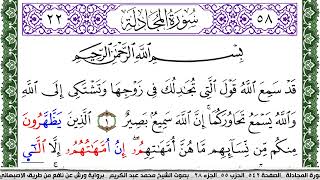 ٥٨ سُورَةُ المُجَادلَة ٢٢
بِسْمِ اللَّهِ الرَّحْمَنِ الرَّحِيمِ
قَد سَّمِعَ اَللَّهُ قَوْلَ اَلَّتِي تُجَٰدِلُكَ فِي زَوْجِهَا وَتَشْتَكِي إِلَى اَللَّهِ
وَاللَّهُ يَسْمَعُ تَحَاوُرَكُمَا إِنَّ اَللَّهَ سَمِيعٌ بَصِيرٌ ١ اَلَّذِينَ يَظَّهَّرُونَ
مِنكُم مِّن نِّسَآئِهِم مَّا هُنَّ أُمَّهَٰتِهِمُۥ إِنْ أُمَّهَٰتُهُمُۥ إِلَّا اَلَّٰٓـِٔي
سورة المجادلة. الصفحة ٥٤٢ الحزب ٥٥ الجزء ٢٨ بصوت الشيخ محمد عبد الكريم برواية ورش عن نافع من طريق الاصبهاني